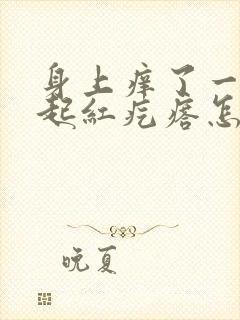 身上痒了一
起红疙瘩怎
晚夏